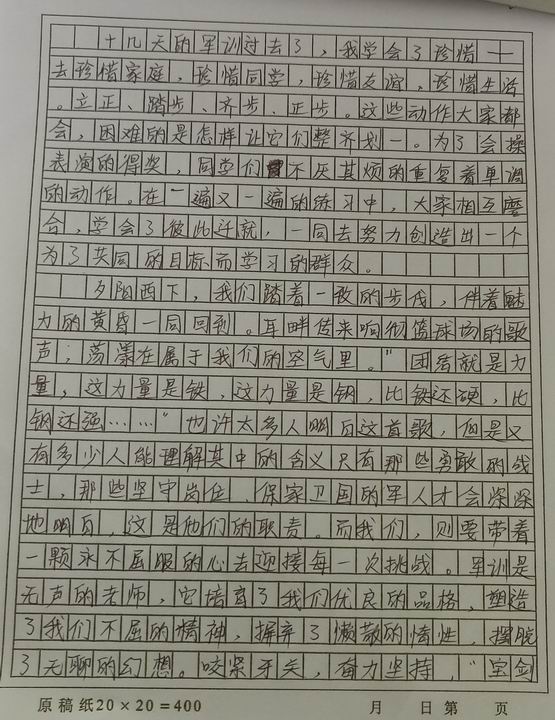 十几天的军训过去了，我学会了珍惜——
去珍惜家庭，珍惜同学，珍惜友谊，珍惜生活
。立正、踏步、齐步、正步。这些动作大家都
会，困难的是怎样让它们整齐划一。为了会操
表演的得奖，同学们不厌其烦的重复着单调
的动作。在一遍又一遍的练习中，大家相互磨
合，学会了彼此迁就，一同去努力创造出一个
为了共同的目标而学习的群众。
夕阳西下，我们踏着一致的步伐，伴着魅
力的黄昏一同回到。耳畔传来响彻篮球场的歌
声；荡漾在属于我们的空气里。“团结就是力
量，这力量是铁，这力量是钢，比铁还硬，比
钢还强……”也许太多人明白这首歌，但是又
有多少人能理解其中的含义只有那些勇敢的战
士，那些坚守岗位、保家卫国的军人才会深深
地明白，这是他们的职责。而我们，则要带着
一颗永不屈服的心去迎接每一次挑战。军训是
无声的老师，它培育了我们优良的品格，塑造
了我们不屈的精神，摒弃了懒散的惰性，摆脱
了无聊的幻想。咬紧牙关，奋力坚持，“宝剑
原稿纸20×20=400 月 日第 页